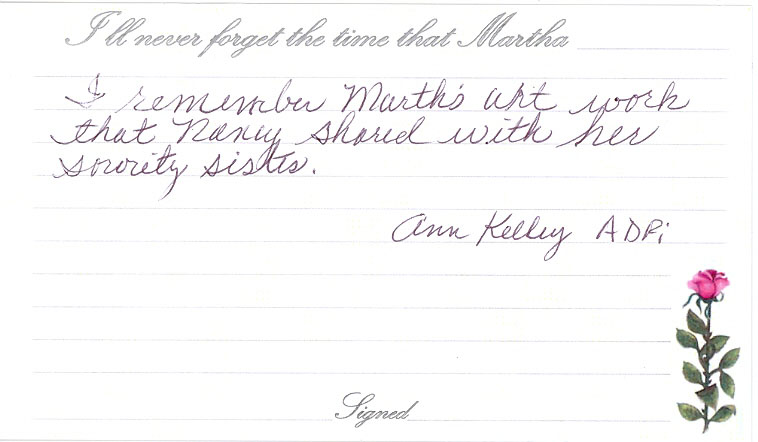 I'll never forget the time that Martha
I remember Marth's art work
that Nancy shared with her
sorority sister.
Ann Kelley ADPi
Signed